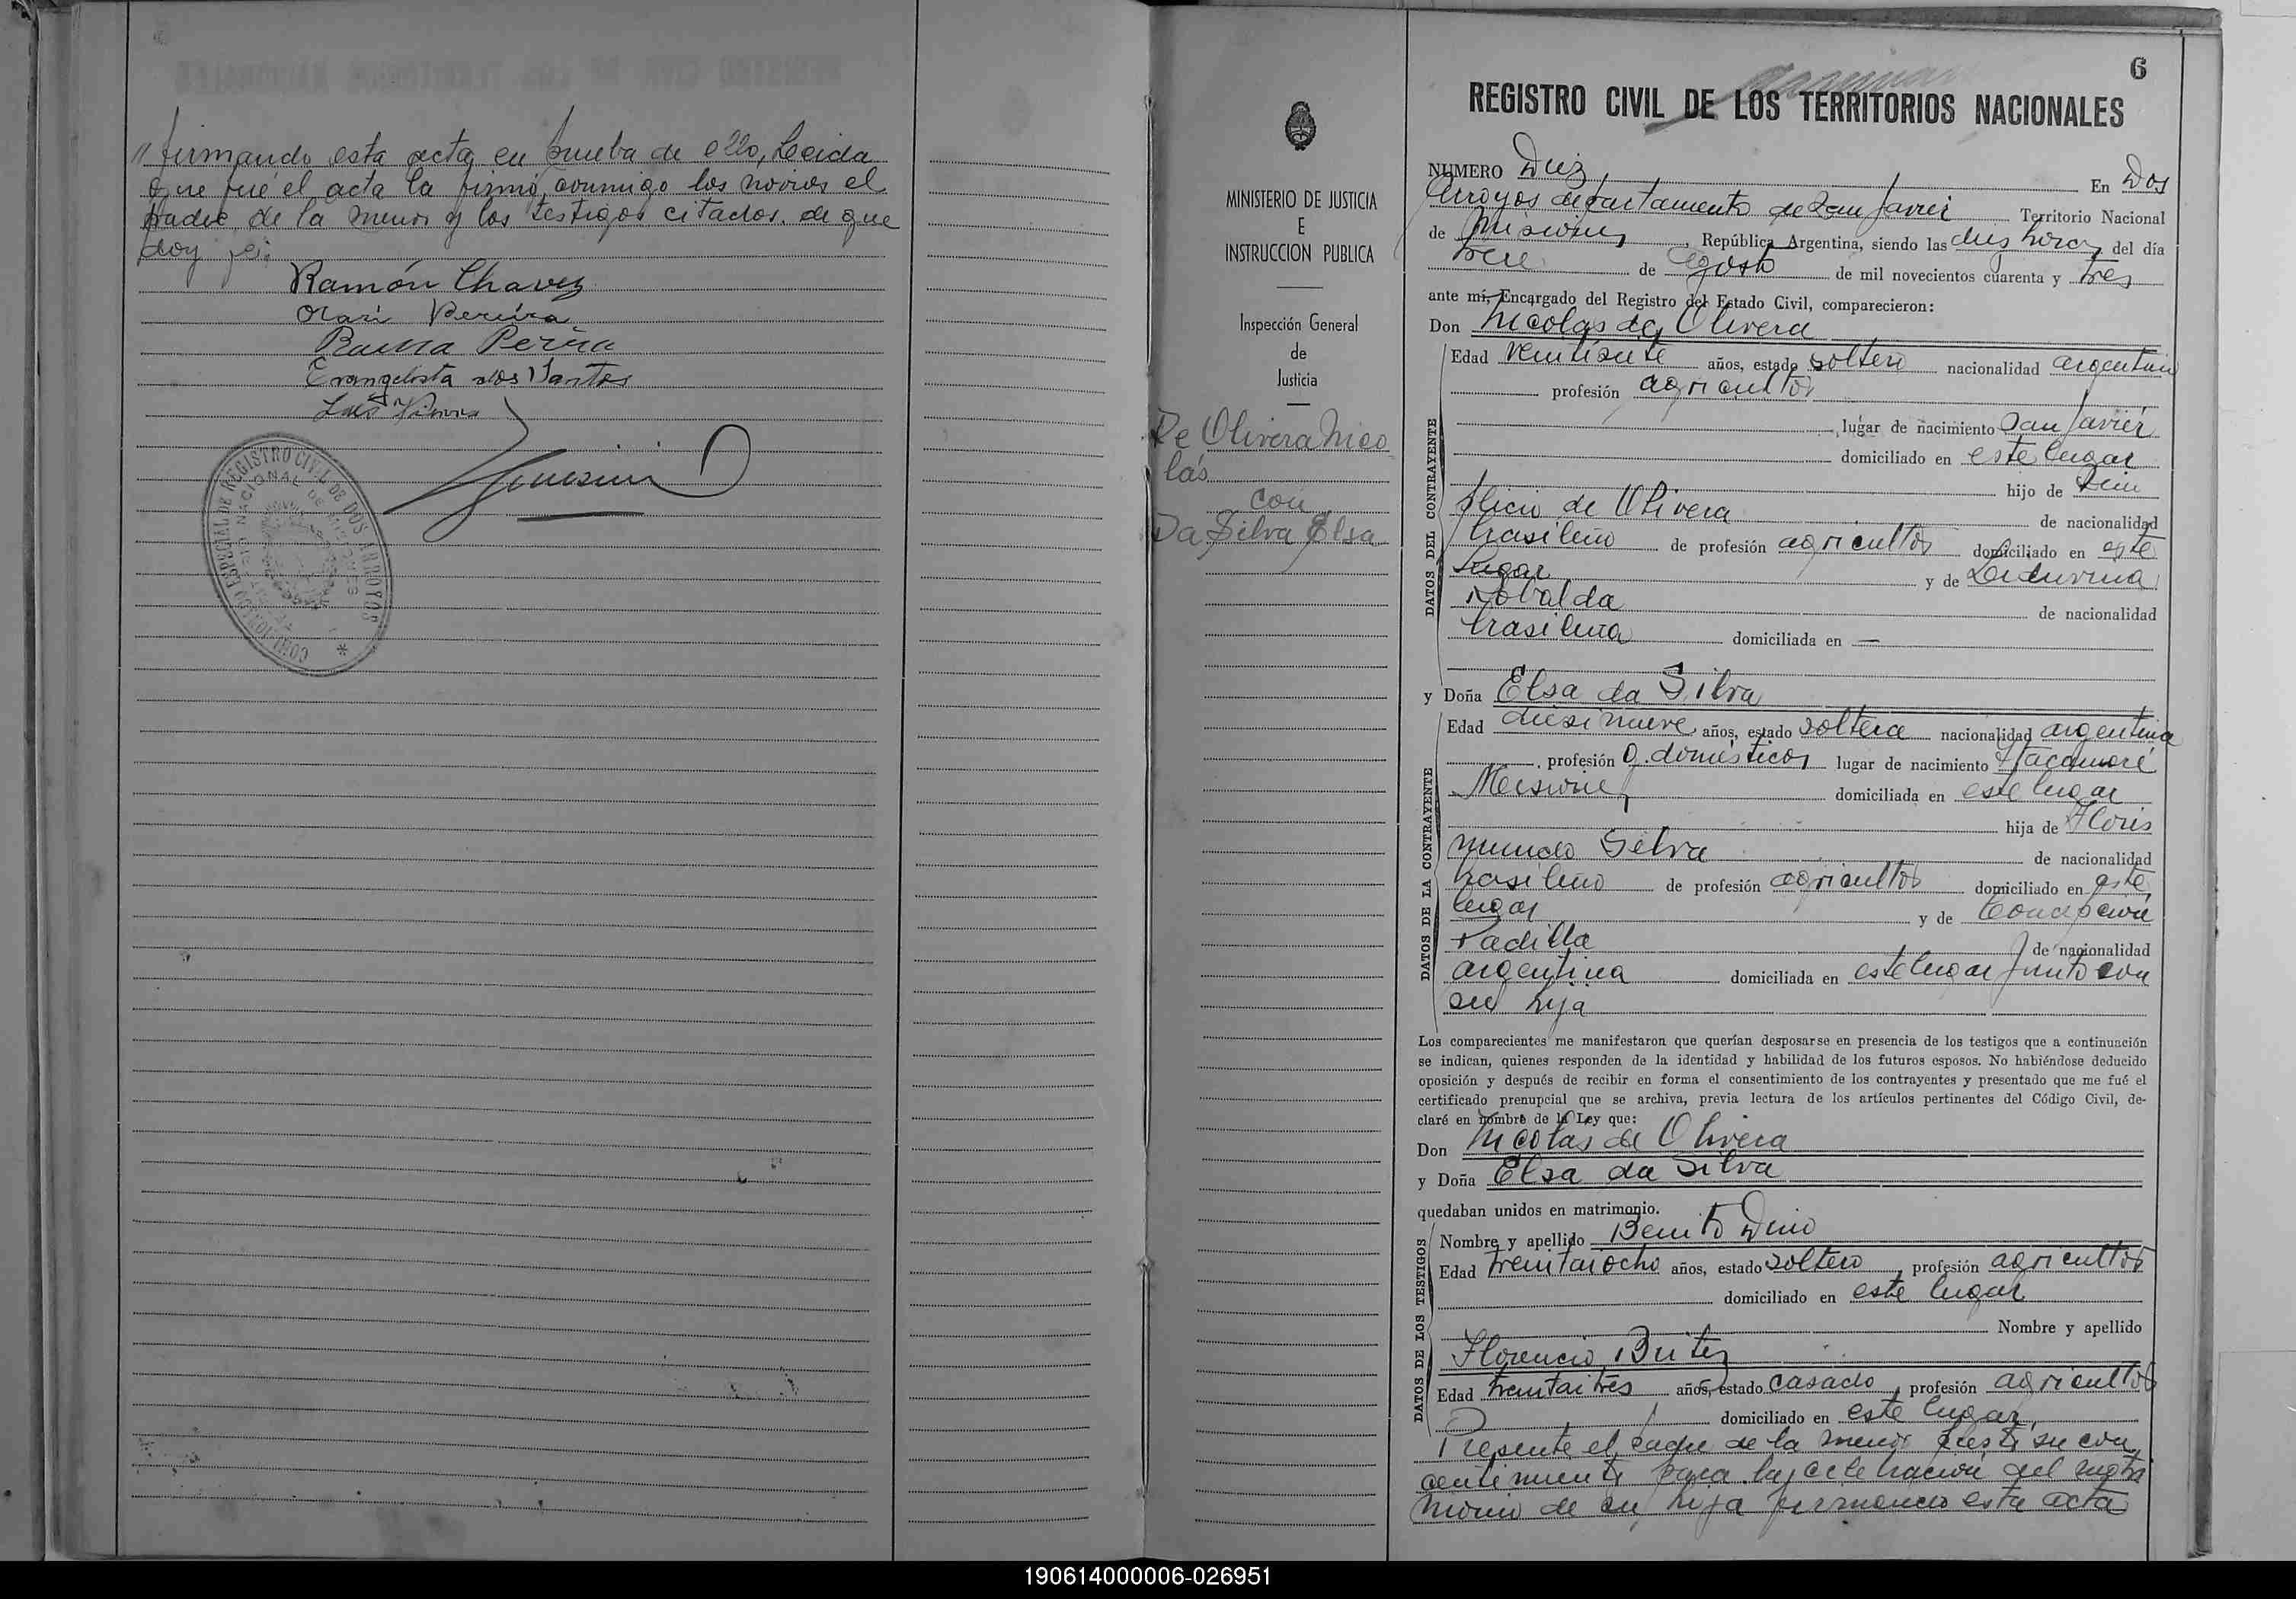 " firmando esta acta en prueba de ello, Leida
que fué el acta la firmó conmigo los novios el
Padre de la menor y los testigos citados. de que
doy fé:
Ramón Chavez
Pereira
Evangelista dos Santos
COMISIONADO ESPECIAL DE REGISTRO CIVIL DE DOS ARROYOS
MINISTERIO DE JUSTICIA
E
INSTRUCCION PUBLICA
Inspección General
de
Justicia
De Olivera Nico
lás
con
Da Silva Elsa
6
REGISTRO CIVIL DE LOS TERRITORIOS NACIONALES
NUMERO Diez En Dos
Arroyos departamento de San Javier Territorio Nacional
de Misiones, República Argentina, siendo las diez horas del día
trece de Agosto de mil novecientos cuarenta y tres
ante mí, Encargado del Registro del Estado Civil, comparecieron:
Don Nicolas de Olivera
DATOS DEL CONTRAYENTE
Edad ventisiete años, estado soltero nacionalidad argentino
profesión agricultor
lugar de nacimiento San Javier
domiciliado en este lugar
hijo de Sim
plicio de Olivera de nacionalidad
brasileño de profesión agricultor domiciliado en este
lugar y de
de nacionalidad
brasileña domiciliada en —
y Doña Elsa da Silva
DATOS DE LA CONTRAYENTE
Edad diesinueve años, estado soltera nacionalidad argentina
profesión q. domésticos lugar de nacimiento
Misiones domiciliada en este lugar
hija de Floris
mundo Silva de nacionalidad
brasileño de profesión agricultor domiciliado en este
lugar y de Concepción
Padilla de nacionalidad
argentina domiciliada en este lugar junto con
su hija
Los comparecientes me manifestaron que querían desposarse en presencia de los testigos que a continuación
se indican, quienes responden de la identidad y habilidad de los futuros esposos. No habiéndose deducido
oposición y después de recibir en forma el consentimiento de los contrayentes y presentado que me fué el
certificado prenupcial que se archiva, previa lectura de los artículos pertinentes del Código Civil, de-
claré en nombre de la Ley que:
Don Nicolas de Olivera
y Doña Elsa da Silva
quedaban unidos en matrimonio.
DATOS DE LOS TESTIGOS
Nombre y apellido Benito
Edad treintaiocho años, estado soltero, profesión agricultor
domiciliado en este lugar
Nombre y apellido
Florencio Britez
Edad treintaitrés años, estado casado, profesión agricultor
domiciliado en este lugar,
Presente el padre de la menor presta su con
centimiento para la celebración del matri
monio de su hija firmando esta acta
190614000006-026951